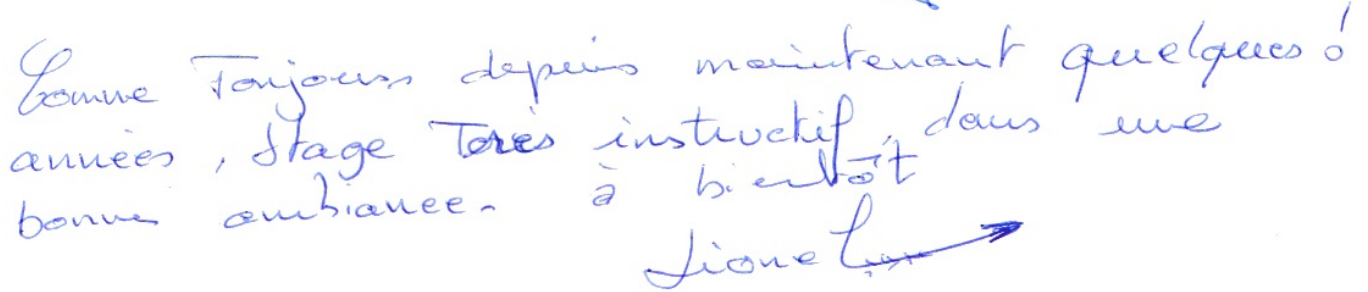 Comme Toujours depuis maintenant quelques
années, Stage Très instructif, dans une
bonne ambiance. à bientôt
Lionel